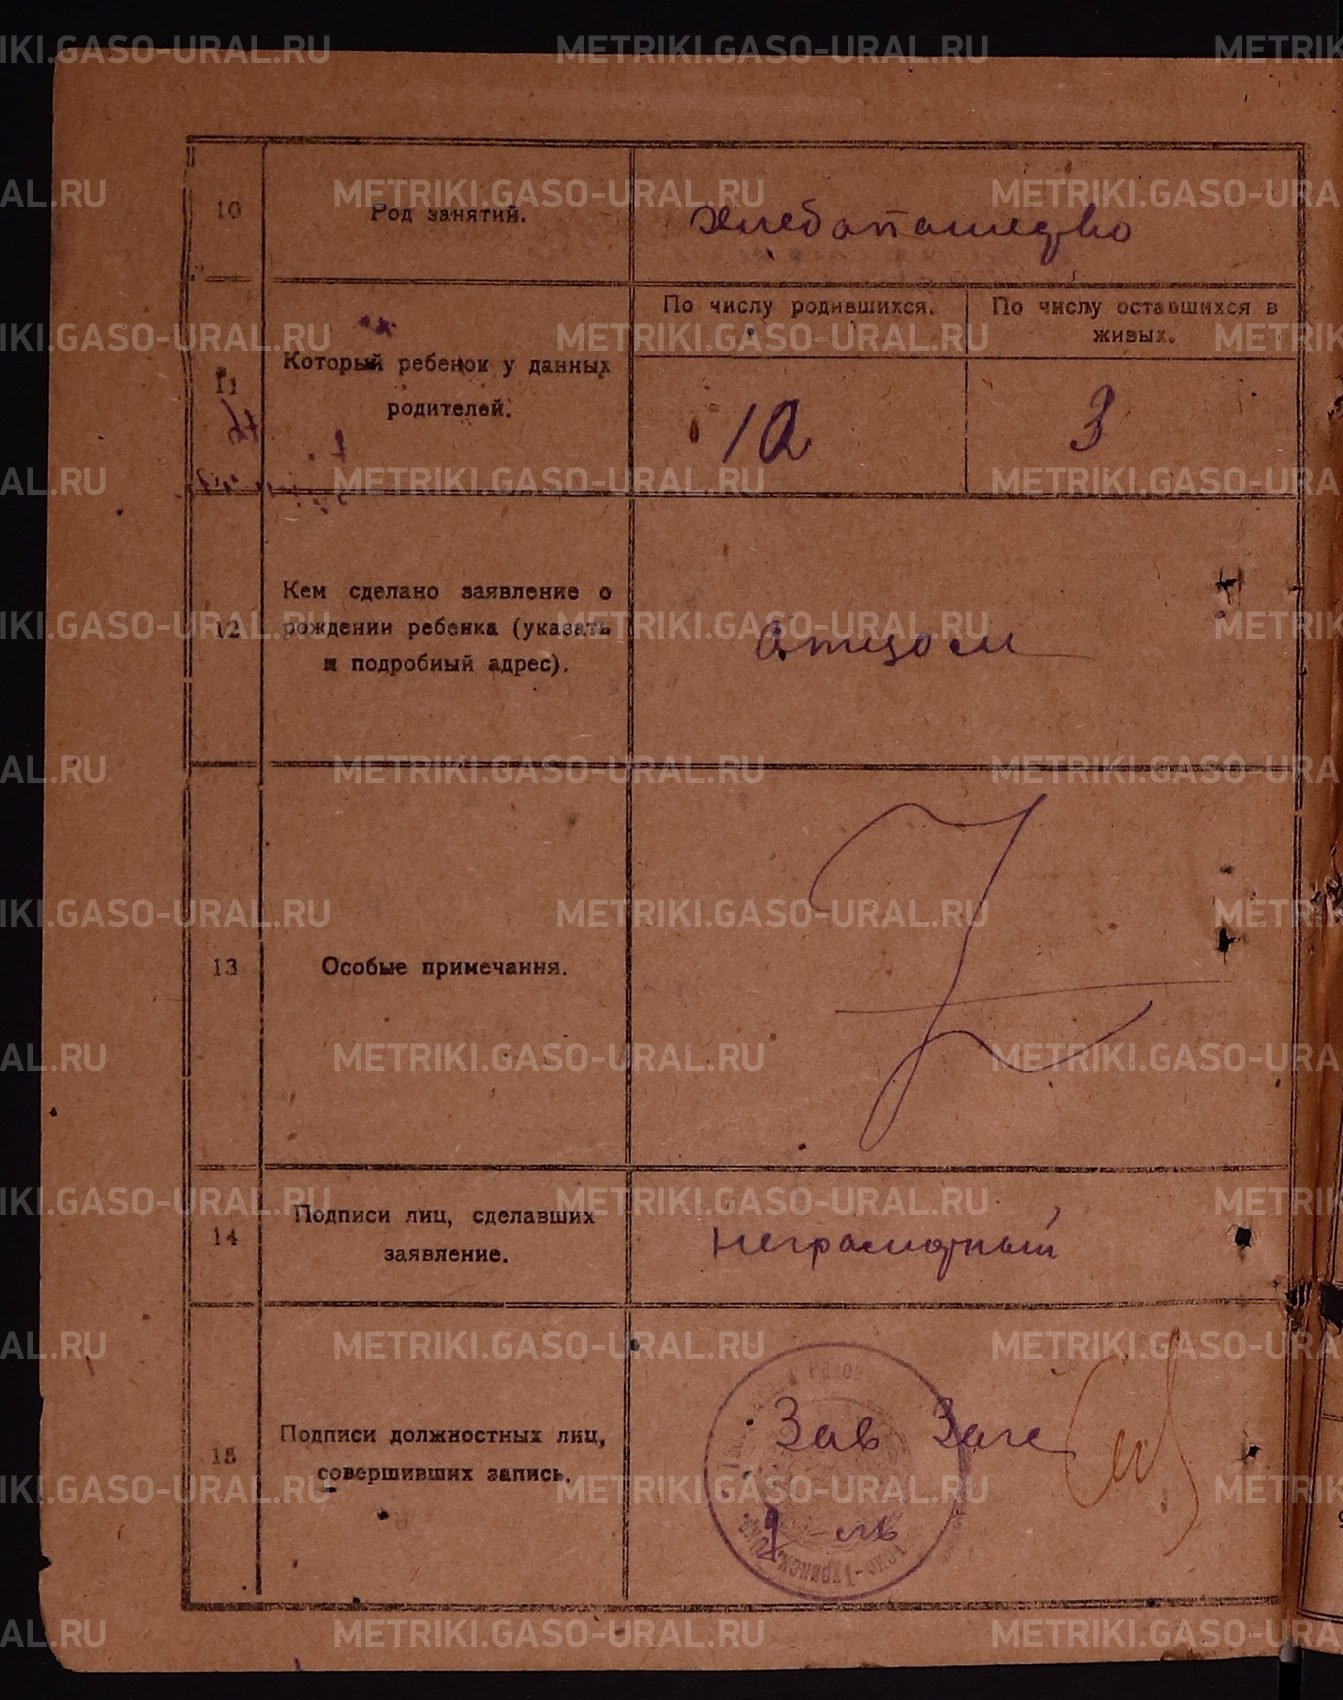 10
Род занятий.
хлебопашедво
11
Который ребенок у данных
родителей.
По числу родившихся.
По числу оставшихся в
живых.
10
3
12
Кем сделано заявление о
рождении ребенка (указать
и подробный адрес).
Отцом
13
Особые примечания.
14
Подписи лиц, сделавших
заявление.
Неграмодный
15
Подписи должностных лиц,
совершивших запись.
Зав Загс
METRIKI.GASO-URAL.RU